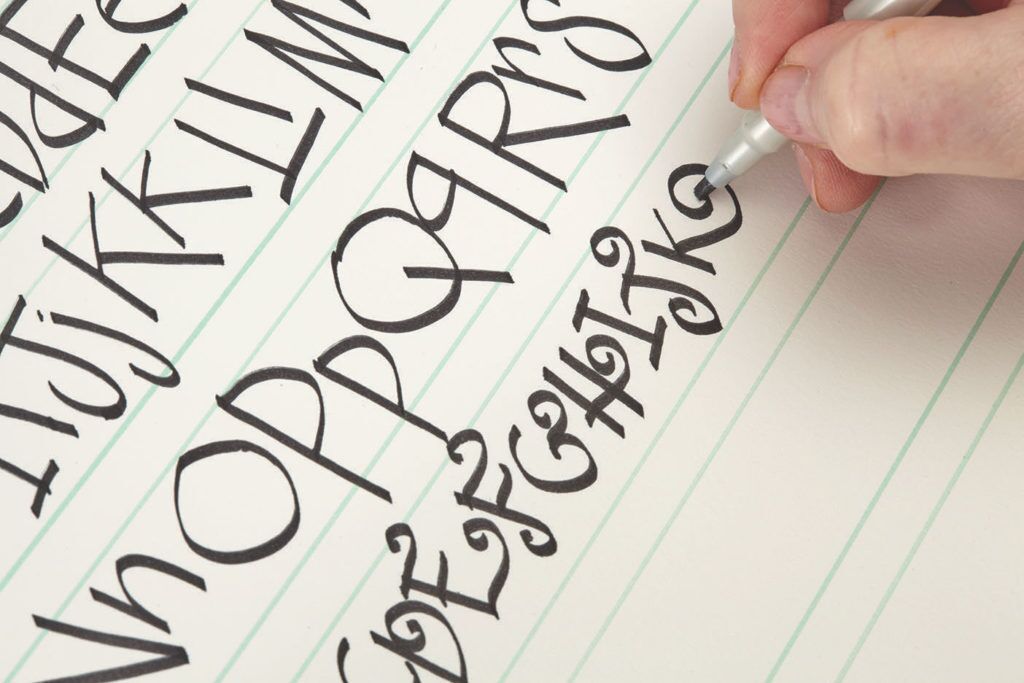 DdEe
IiJjKkLlM
NnOPpQqRrS
DEFGHIJK